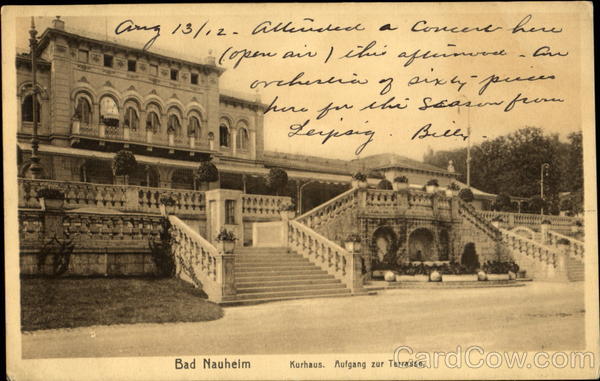 Aug 13/12 - Attended a Concert here
(open air) this afternoon - An
orchestra of sixty-pieces
here for the season from
Leipsig. Billy.
Bad Nauheim Kurhaus. Aufgang zur Terrasse.
CardCow.com